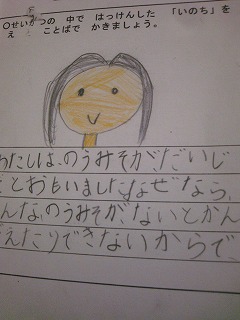 ○せいかつの 中で はっけんした 「いのち」を
え ことばで かきましょう。
わたしは、のうみそが、だいじ
とおもいました。なぜなら、
んな、のうみそが、ないとかん
えたりできないからで、